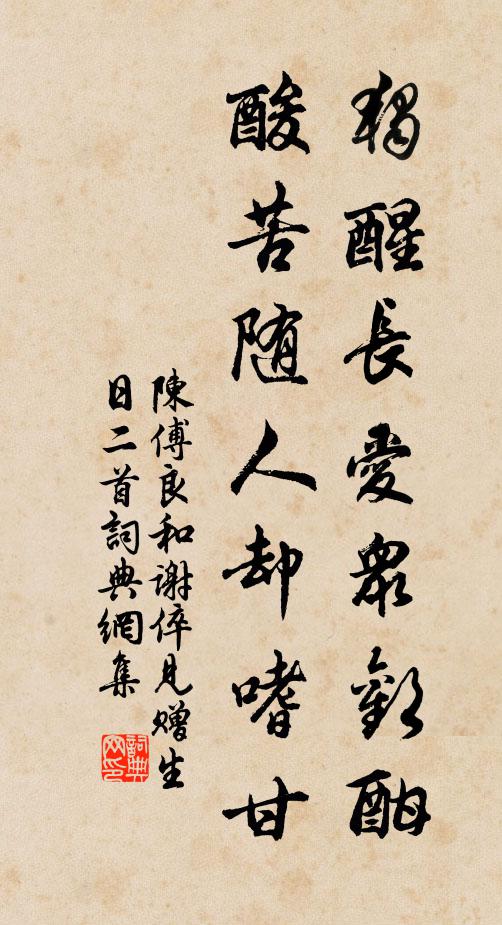 獨醒長愛衆歡酣
酸苦随人却嗜甘
陳傅良和謝倅見贈生
日二首詞典網集
詞典
网印